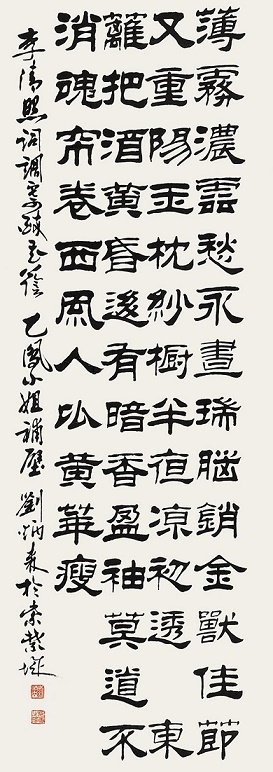 薄霧濃雲愁永晝瑞腦銷金獸佳節
又重陽玉枕紗櫥半夜涼初透東
離把酒黃昏後有暗香盈袖莫道不
消魂帘卷西風人比黃華瘦
李清照詞調寄醉花陰 乙鳳小姐補壁 劉炳森於京